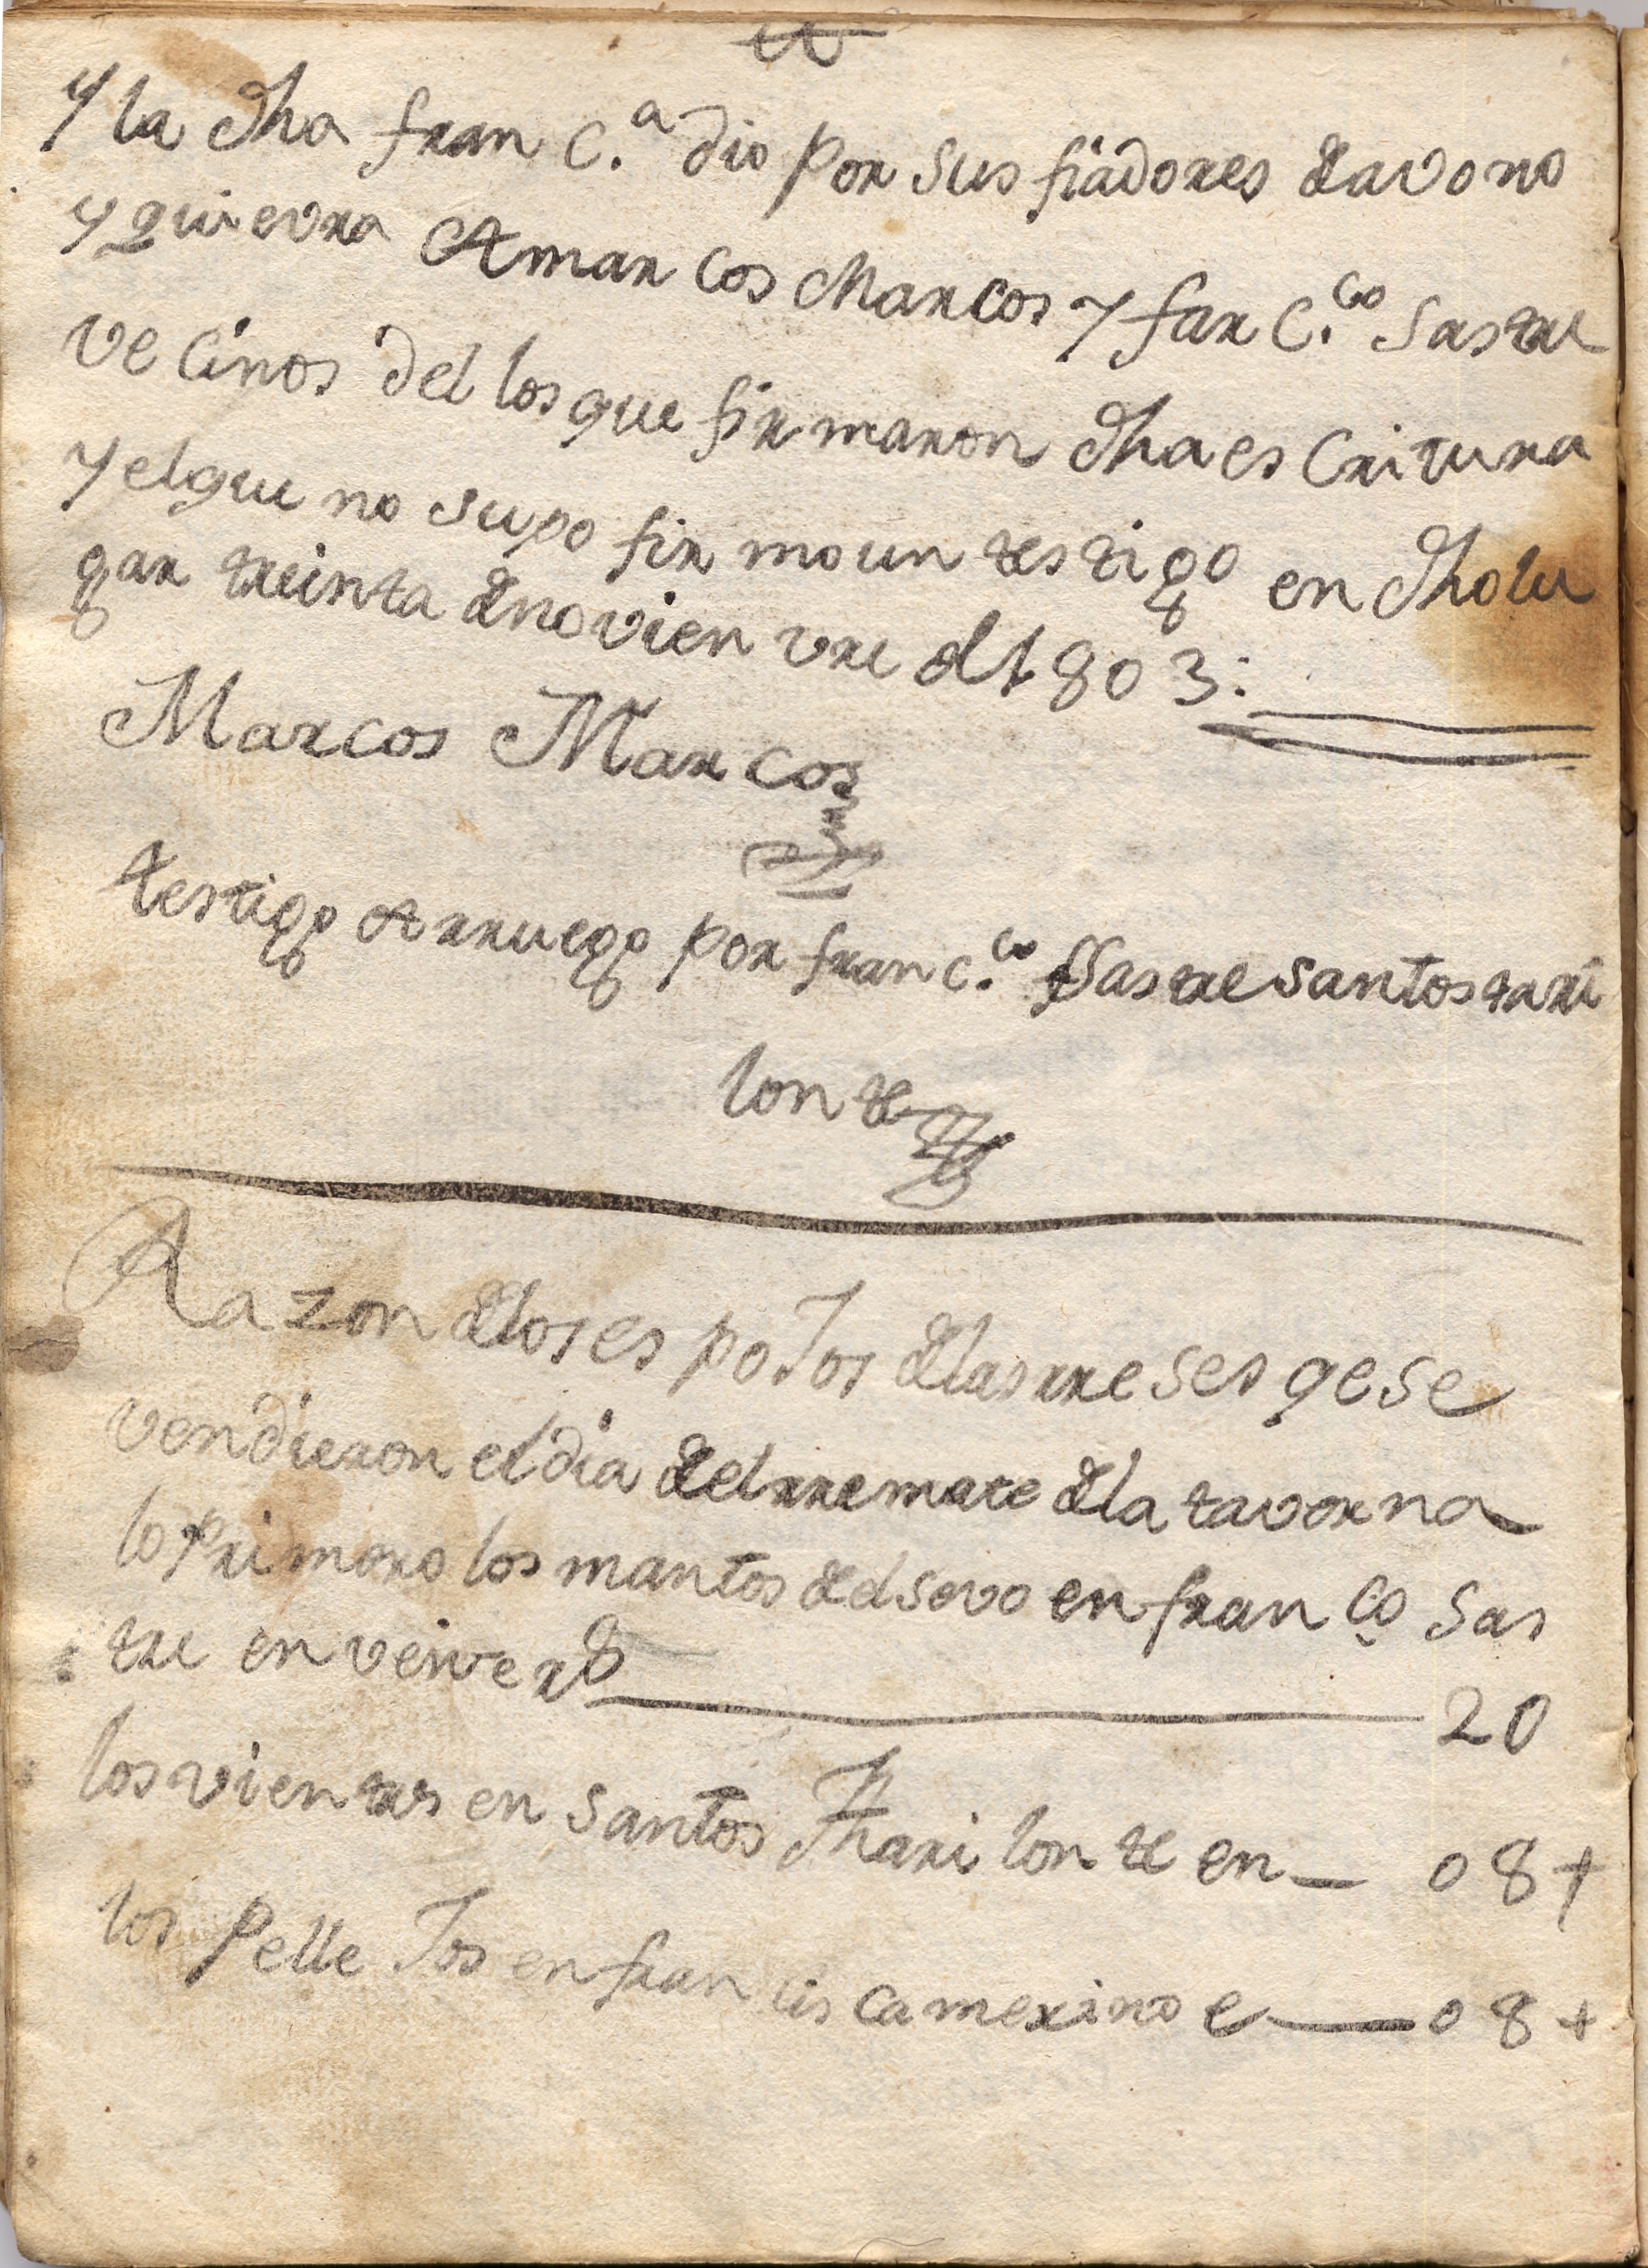 y la dha fran c.ª dio por sus fiadores de avono
y quievra A mar cos Marcos y far c.co Sastre
ve cinos del los que fir maron dha es critura
y el que no supo fir mo un testigo en dho lu
gar treinta de novien vre d 1803:
Marcos Marcos
testigo Arruego por fran c.co Sastre santos tari
lon te
Razon de los es poJos de las rreses qe se
vendieron el dia del rremate de la taverna
lo primero los mantos del sevo en fran co Sas
tre en veive rs
20
los vientres en santos Thari lon te en 08 +
los PelleJos en fran cis ca merino e 08 +